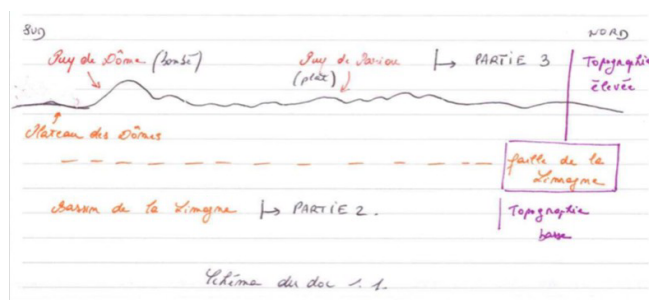 SUD
NORD
Puy de Dôme (bombé)
Puy de Pariou
(plat)
↦ PARTIE 3
Topographie
élevée
Plateau des Dômes
faille de la
Limagne
Bassin de la Limagne ↦ PARTIE 2.
Topographie
basse
Schéma du doc 1.1.